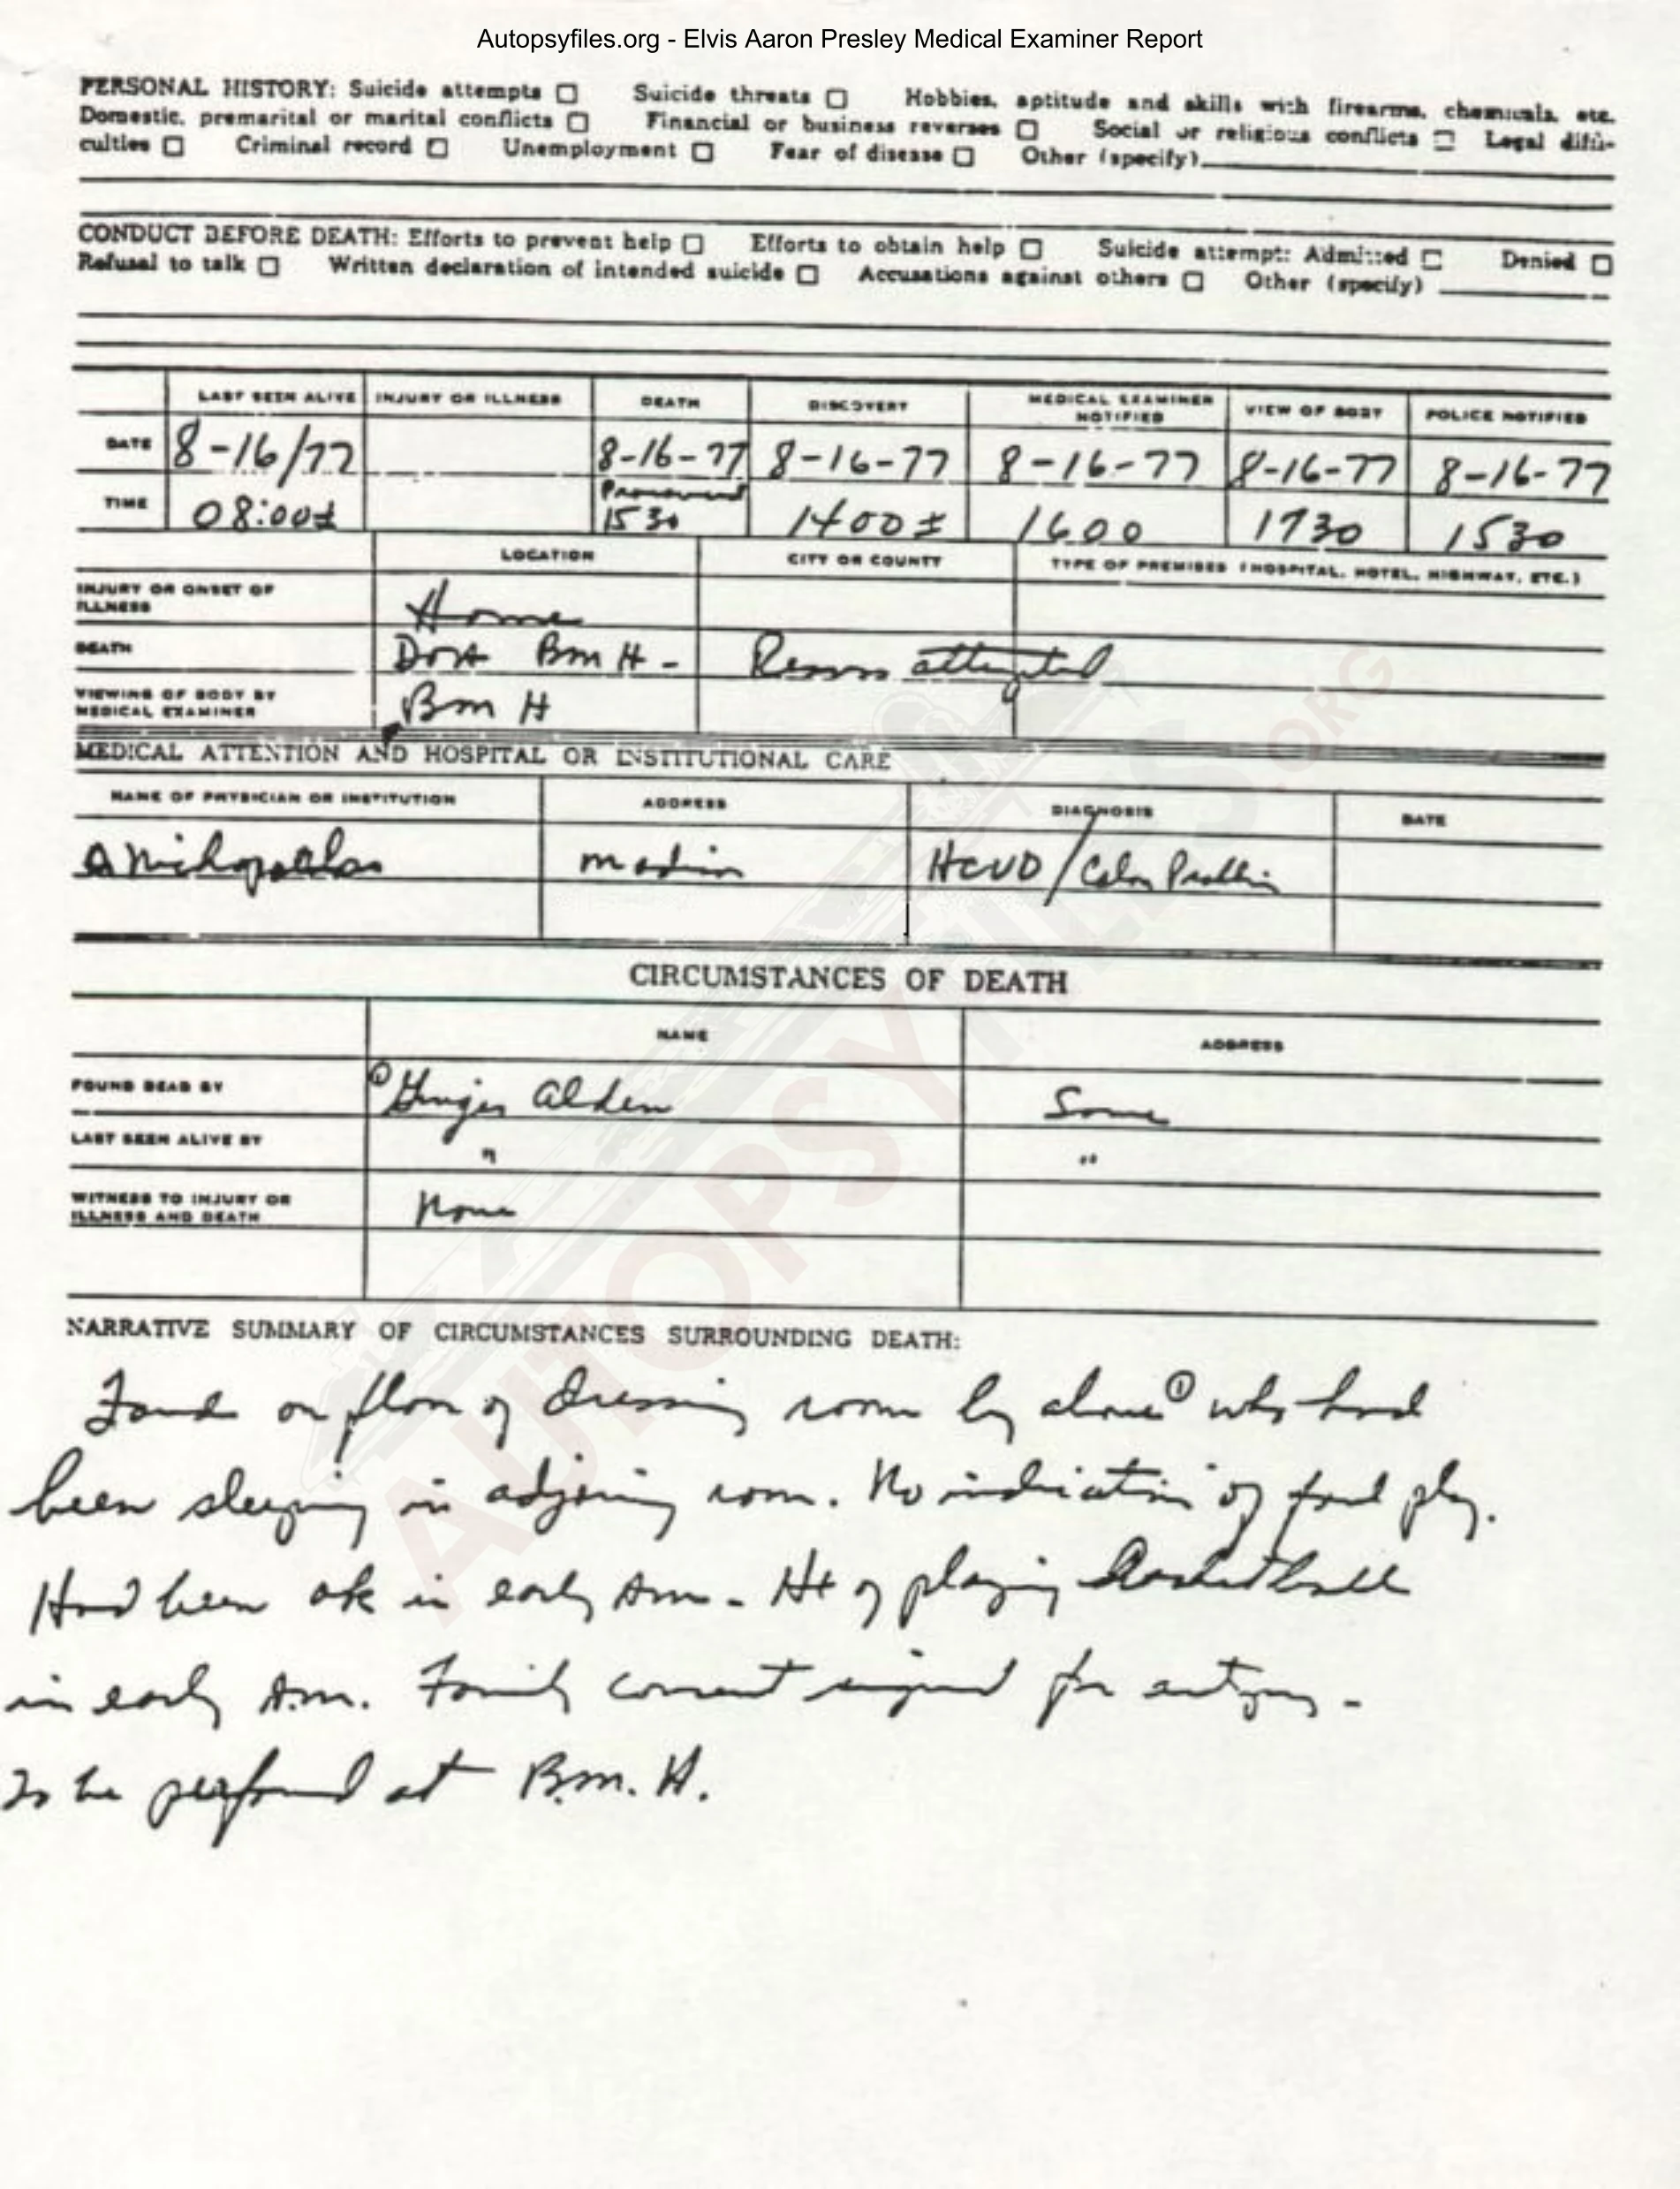 Autopsyfiles.org - Elvis Aaron Presley Medical Examiner Report
PERSONAL HISTORY: Suicide attempts □ Suicide threats □ Hobbies, aptitude and skills with firearms, chemicals, etc.
Domestic, premarital or marital conflicts □ Financial or business reverses □ Social or religious conflicts □ Legal diffi-
culties □ Criminal record □ Unemployment □ Fear of disease □ Other (specify)
CONDUCT BEFORE DEATH: Efforts to prevent help □ Efforts to obtain help □ Suicide attempt: Admitted □ Denied □
Refusal to talk □ Written declaration of intended suicide □ Accusations against others □ Other (specify)
LAST SEEN ALIVE INJURY OR ILLNESS DEATH DISCOVERY MEDICAL EXAMINER NOTIFIED VIEW OF BODY POLICE NOTIFIED
DATE 8-16/77 8-16-77 8-16-77 8-16-77 8-16-77 8-16-77
TIME 08:00± Pronounced 1530 1400± 1600 1730 1530
LOCATION CITY OR COUNTY TYPE OF PREMISES (HOSPITAL, HOTEL, HIGHWAY, ETC.)
INJURY OR ONSET OF ILLNESS Home
DEATH DOA BMH - attempted
VIEWING OF BODY BY MEDICAL EXAMINER BMH
MEDICAL ATTENTION AND HOSPITAL OR INSTITUTIONAL CARE
NAME OF PHYSICIAN OR INSTITUTION ADDRESS DIAGNOSIS DATE
Nichopoulos HCVD / Colon Problem
CIRCUMSTANCES OF DEATH
NAME ADDRESS
FOUND DEAD BY ① Ginger Alden Same
LAST SEEN ALIVE BY " "
WITNESS TO INJURY OR ILLNESS AND DEATH None
NARRATIVE SUMMARY OF CIRCUMSTANCES SURROUNDING DEATH:
Found on floor of dressing room by above ① who had
been sleeping in adjoining room. No indication of foul play.
Had been ok in early Am - Hx of playing basketball
in early A.m. Family consent signed for autopsy -
To be performed at B.M.H.
AUTOPSYFILES.ORG